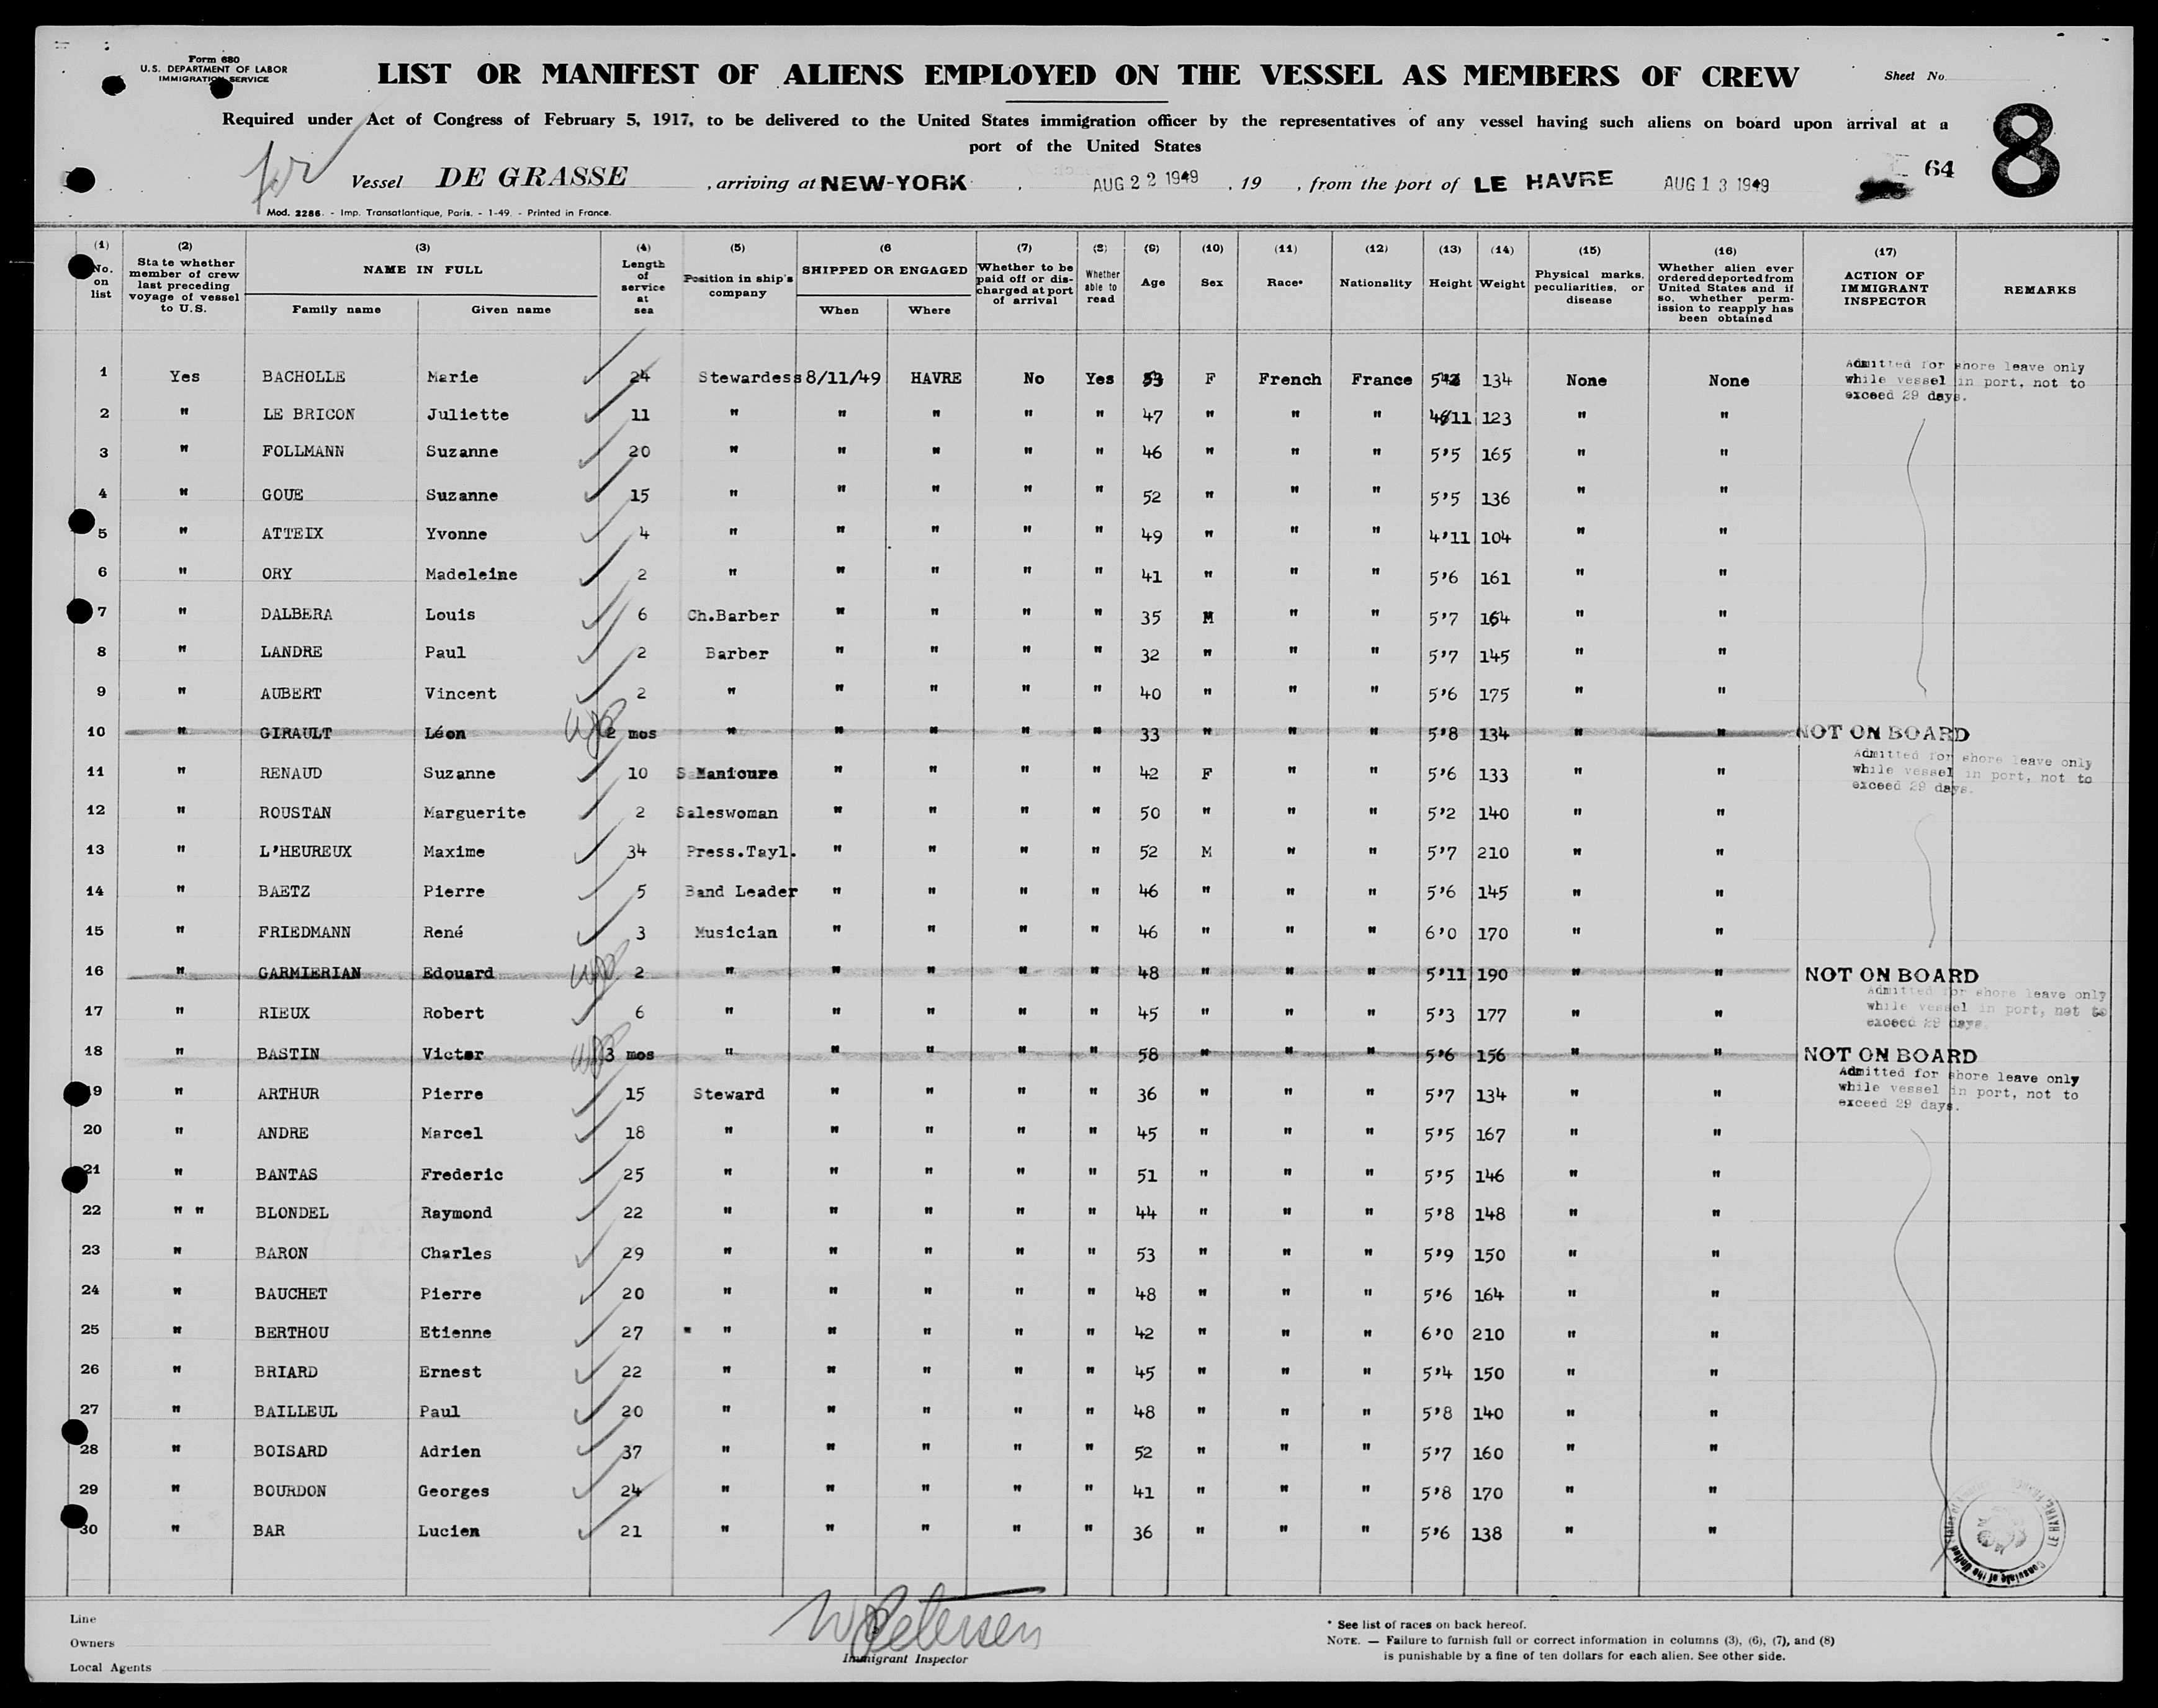 Form 680
U.S. DEPARTMENT OF LABOR
IMMIGRATION SERVICE
LIST OR MANIFEST OF ALIENS EMPLOYED ON THE VESSEL AS MEMBERS OF CREW
Sheet No.
Required under Act of Congress of February 5, 1917, to be delivered to the United States immigration officer by the representatives of any vessel having such aliens on board upon arrival at a
port of the United States
8
64
Vessel DE GRASSE , arriving at NEW-YORK . AUG 22 1949 , 19 , from the port of LE HAVRE AUG 13 1949
Mod. 2286. - Imp. Transatlantique, Paris. - 1-49. - Printed in France.
(1) (2) (3) (4) (5) (6 (7) (8) (9) (10) (11) (12) (13) (14) (15) (16) (17)
No. on list State whether member of crew last preceding voyage of vessel to U.S. NAME IN FULL Family name Given name Length of service at sea Position in ship's company SHIPPED OR ENGAGED When Where Whether to be paid off or discharged at port of arrival Whether able to read Age Sex Race* Nationality Height Weight Physical marks, peculiarities, or disease Whether alien ever ordered deported from United States and if so, whether permission to reapply has been obtained ACTION OF IMMIGRANT INSPECTOR REMARKS
1 Yes BACHOLLE Marie 24 Stewardess 8/11/49 HAVRE No Yes 53 F French France 134 None None Admitted for shore leave only while vessel in port, not to exceed 29 days.
2 " LE BRICON Juliette 11 " " " " " 47 " " " 4'11 123 " "
3 " FOLLMANN Suzanne 20 " " " " " 46 " " " 5'5 165 " "
4 " GOUE Suzanne 15 " " " " " 52 " " " 5'5 136 " "
5 " ATTEIX Yvonne 4 " " " " " 49 " " " 4'11 104 " "
6 " ORY Madeleine 2 " " " " " 41 " " " 5'6 161 " "
7 " DALBERA Louis 6 Ch.Barber " " " " 35 M " " 5'7 164 " "
8 " LANDRE Paul 2 Barber " " " " 32 " " " 5'7 145 " "
9 " AUBERT Vincent 2 " " " " " 40 " " " 5'6 175 " "
10 " GIRAULT Léon 2 mos " " " " " 33 " " " 5'8 134 " " NOT ON BOARD
11 " RENAUD Suzanne 10 Manicure " " " " 42 F " " 5'6 133 " " Admitted for shore leave only while vessel in port, not to exceed 29 days.
12 " ROUSTAN Marguerite 2 Saleswoman " " " " 50 " " " 5'2 140 " "
13 " L'HEUREUX Maxime 34 Press.Tayl. " " " " 52 M " " 5'7 210 " "
14 " BAETZ Pierre 5 Band Leader " " " " 46 " " " 5'6 145 " "
15 " FRIEDMANN René 3 Musician " " " " 46 " " " 6'0 170 " "
16 " GARMIERIAN Edouard 2 " " " " " 48 " " " 5'11 190 " " NOT ON BOARD
17 " RIEUX Robert 6 " " " " " 45 " " " 5'3 177 " " Admitted for shore leave only while vessel in port, not to exceed 29 days.
18 " BASTIN Victor 3 mos " " " " " 58 " " " 5'6 156 " " NOT ON BOARD
19 " ARTHUR Pierre 15 Steward " " " " 36 " " " 5'7 134 " " Admitted for shore leave only while vessel in port, not to exceed 29 days.
20 " ANDRE Marcel 18 " " " " " 45 " " " 5'5 167 " "
21 " BANTAS Frederic 25 " " " " " 51 " " " 5'5 146 " "
22 " " BLONDEL Raymond 22 " " " " " 44 " " " 5'8 148 " "
23 " BARON Charles 29 " " " " " 53 " " " 5'9 150 " "
24 " BAUCHET Pierre 20 " " " " " 48 " " " 5'6 164 " "
25 " BERTHOU Etienne 27 " " " " " 42 " " " 6'0 210 " "
26 " BRIARD Ernest 22 " " " " " 45 " " " 5'4 150 " "
27 " BAILLEUL Paul 20 " " " " " 48 " " " 5'8 140 " "
28 " BOISARD Adrien 37 " " " " " 52 " " " 5'7 160 " "
29 " BOURDON Georges 24 " " " " " 41 " " " 5'8 170 " "
30 " BAR Lucien 21 " " " " " 36 " " " 5'6 138 " "
Line
Owners
Local Agents
W Petersen
Immigrant Inspector
* See list of races on back hereof.
NOTE. — Failure to furnish full or correct information in columns (3), (6), (7), and (8)
is punishable by a fine of ten dollars for each alien. See other side.